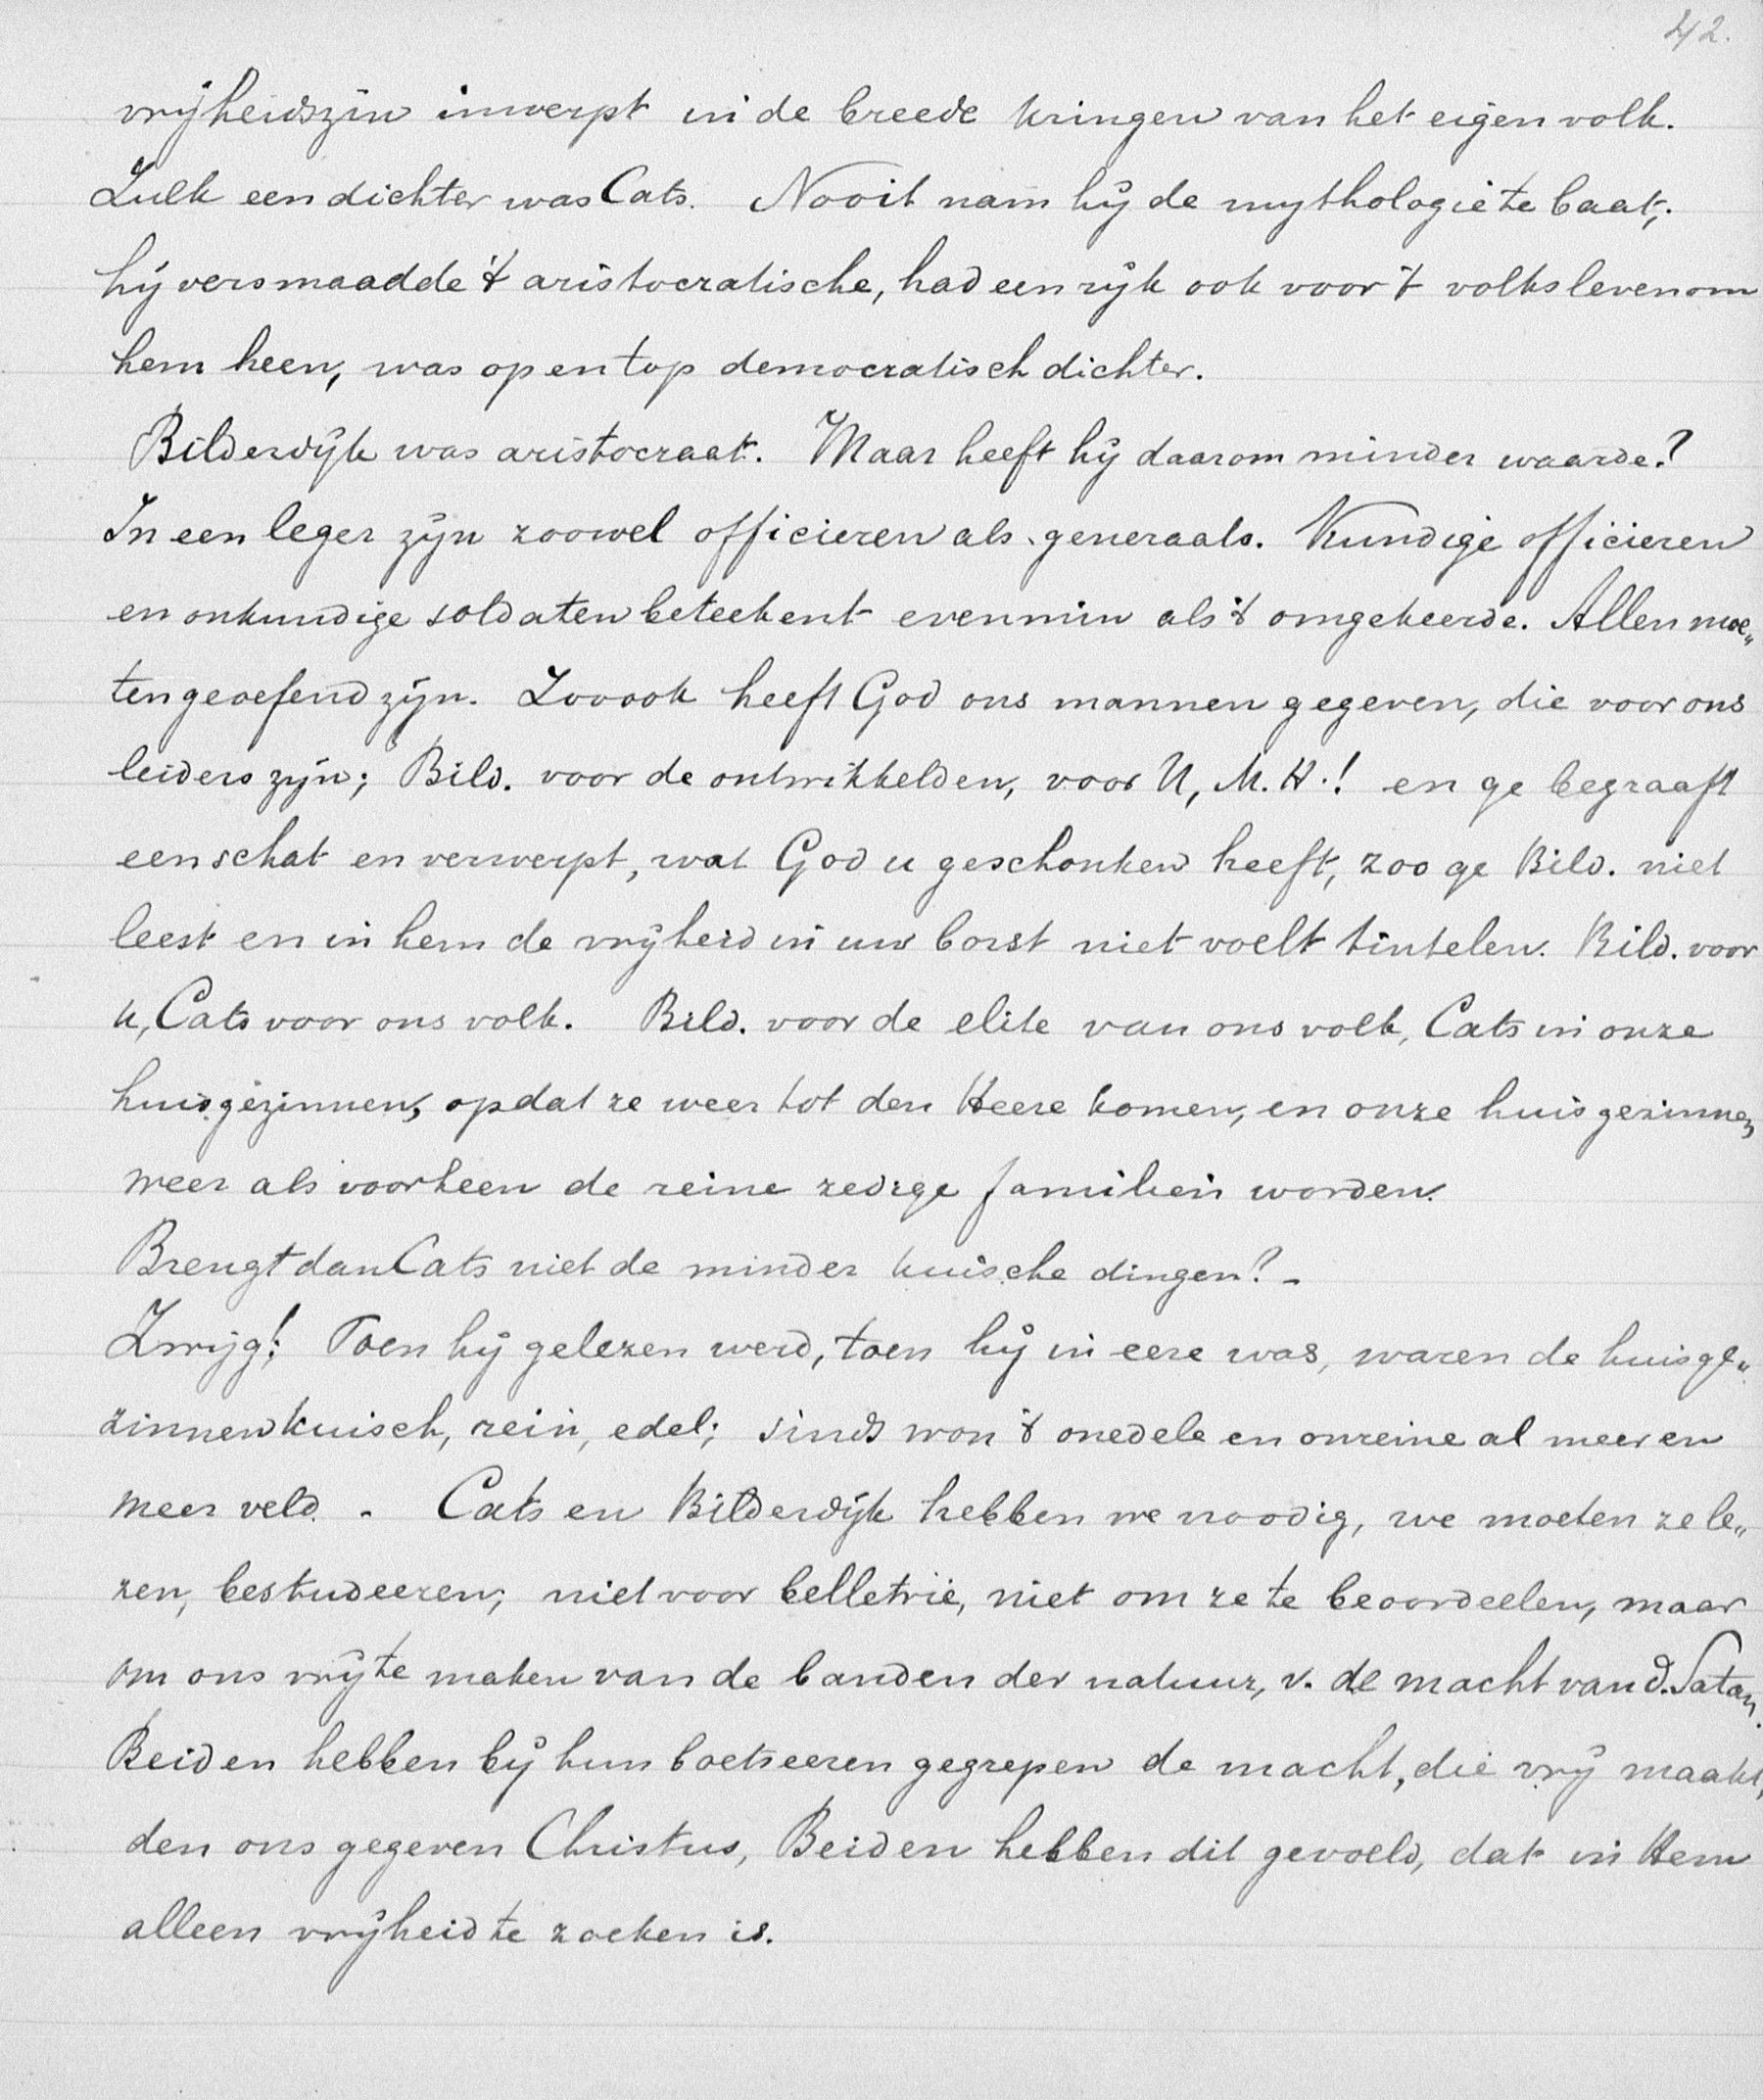 42.
vrijheidszin inwerpt in de breede kringen van het eigen volk.
Zulk een dichter was Cats. Nooit nam hij de mythologie te baat;
hij versmaadde 't aristocratische, had een rijk ook voor 't volksleven om
hem heen, was op en top democratisch dichter.
Bilderdijk was aristocraat. Maar heeft hij daarom minder waarde?
In een leger zijn zoowel officieren als generaals. Kundige officieren
en onkundige soldaten beteekent evenmin als 't omgekeerde. Allen moe„
ten geoefend zijn. Zoo ook heeft God ons mannen gegeven, die voor ons
leiders zijn; Bild. voor de ontwikkelden, voor U, M.H.! en ge begraaft
een schat en verwerpt, wat God u geschonken heeft, zoo ge Bild. niet
leest en in hem de vrijheid in uw borst niet voelt tintelen. Bild. voor
u, Cats voor ons volk. Bild. voor de elite van ons volk, Cats in onze
huisgezinnen, opdat ze weer tot den Heere komen, en onze huisgezinnen
weer als voorheen de reine zedige familien worden.
Brengt dan Cats niet de minder kuische dingen? -
Zwijg! Toen hij gelezen werd, toen hij in eere was, waren de huisge„
zinnen kuisch, rein, edel; sinds won 't onedele en onreine al meer en
meer veld. - Cats en Bilderdijk hebben we noodig, we moeten ze le„
zen, bestudeeren; niet voor belletrie, niet om ze te beoordeelen, maar
om ons vrij te maken van de banden der natuur, v. de macht van d. Satan.
Beiden hebben bij hun boetseeren gegrepen de macht, die vrij maakt,
den ons gegeven Christus, Beiden hebben dit gevoeld, dat in Hem
alleen vrijheid te zoeken is.